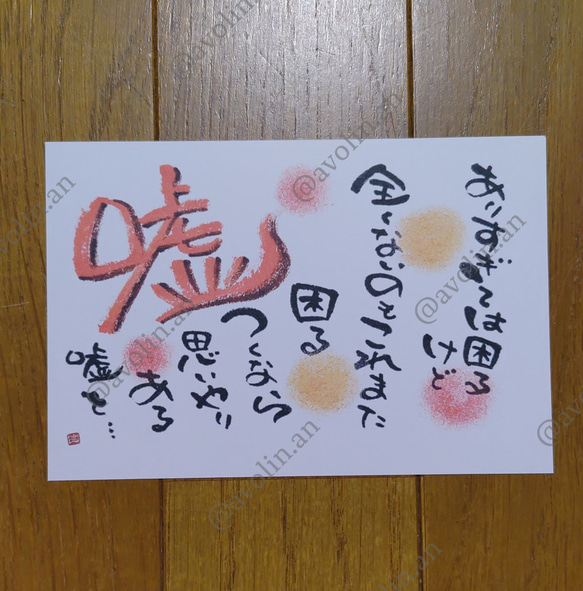 ありすぎては困る
けど
全くないのもこれまた
困る
つくなら
思いやり
ある
嘘を…
嘘
@avolin.an
@avolin.an
@avolin.an
@avolin.an
@avolin.an
@avolin.an